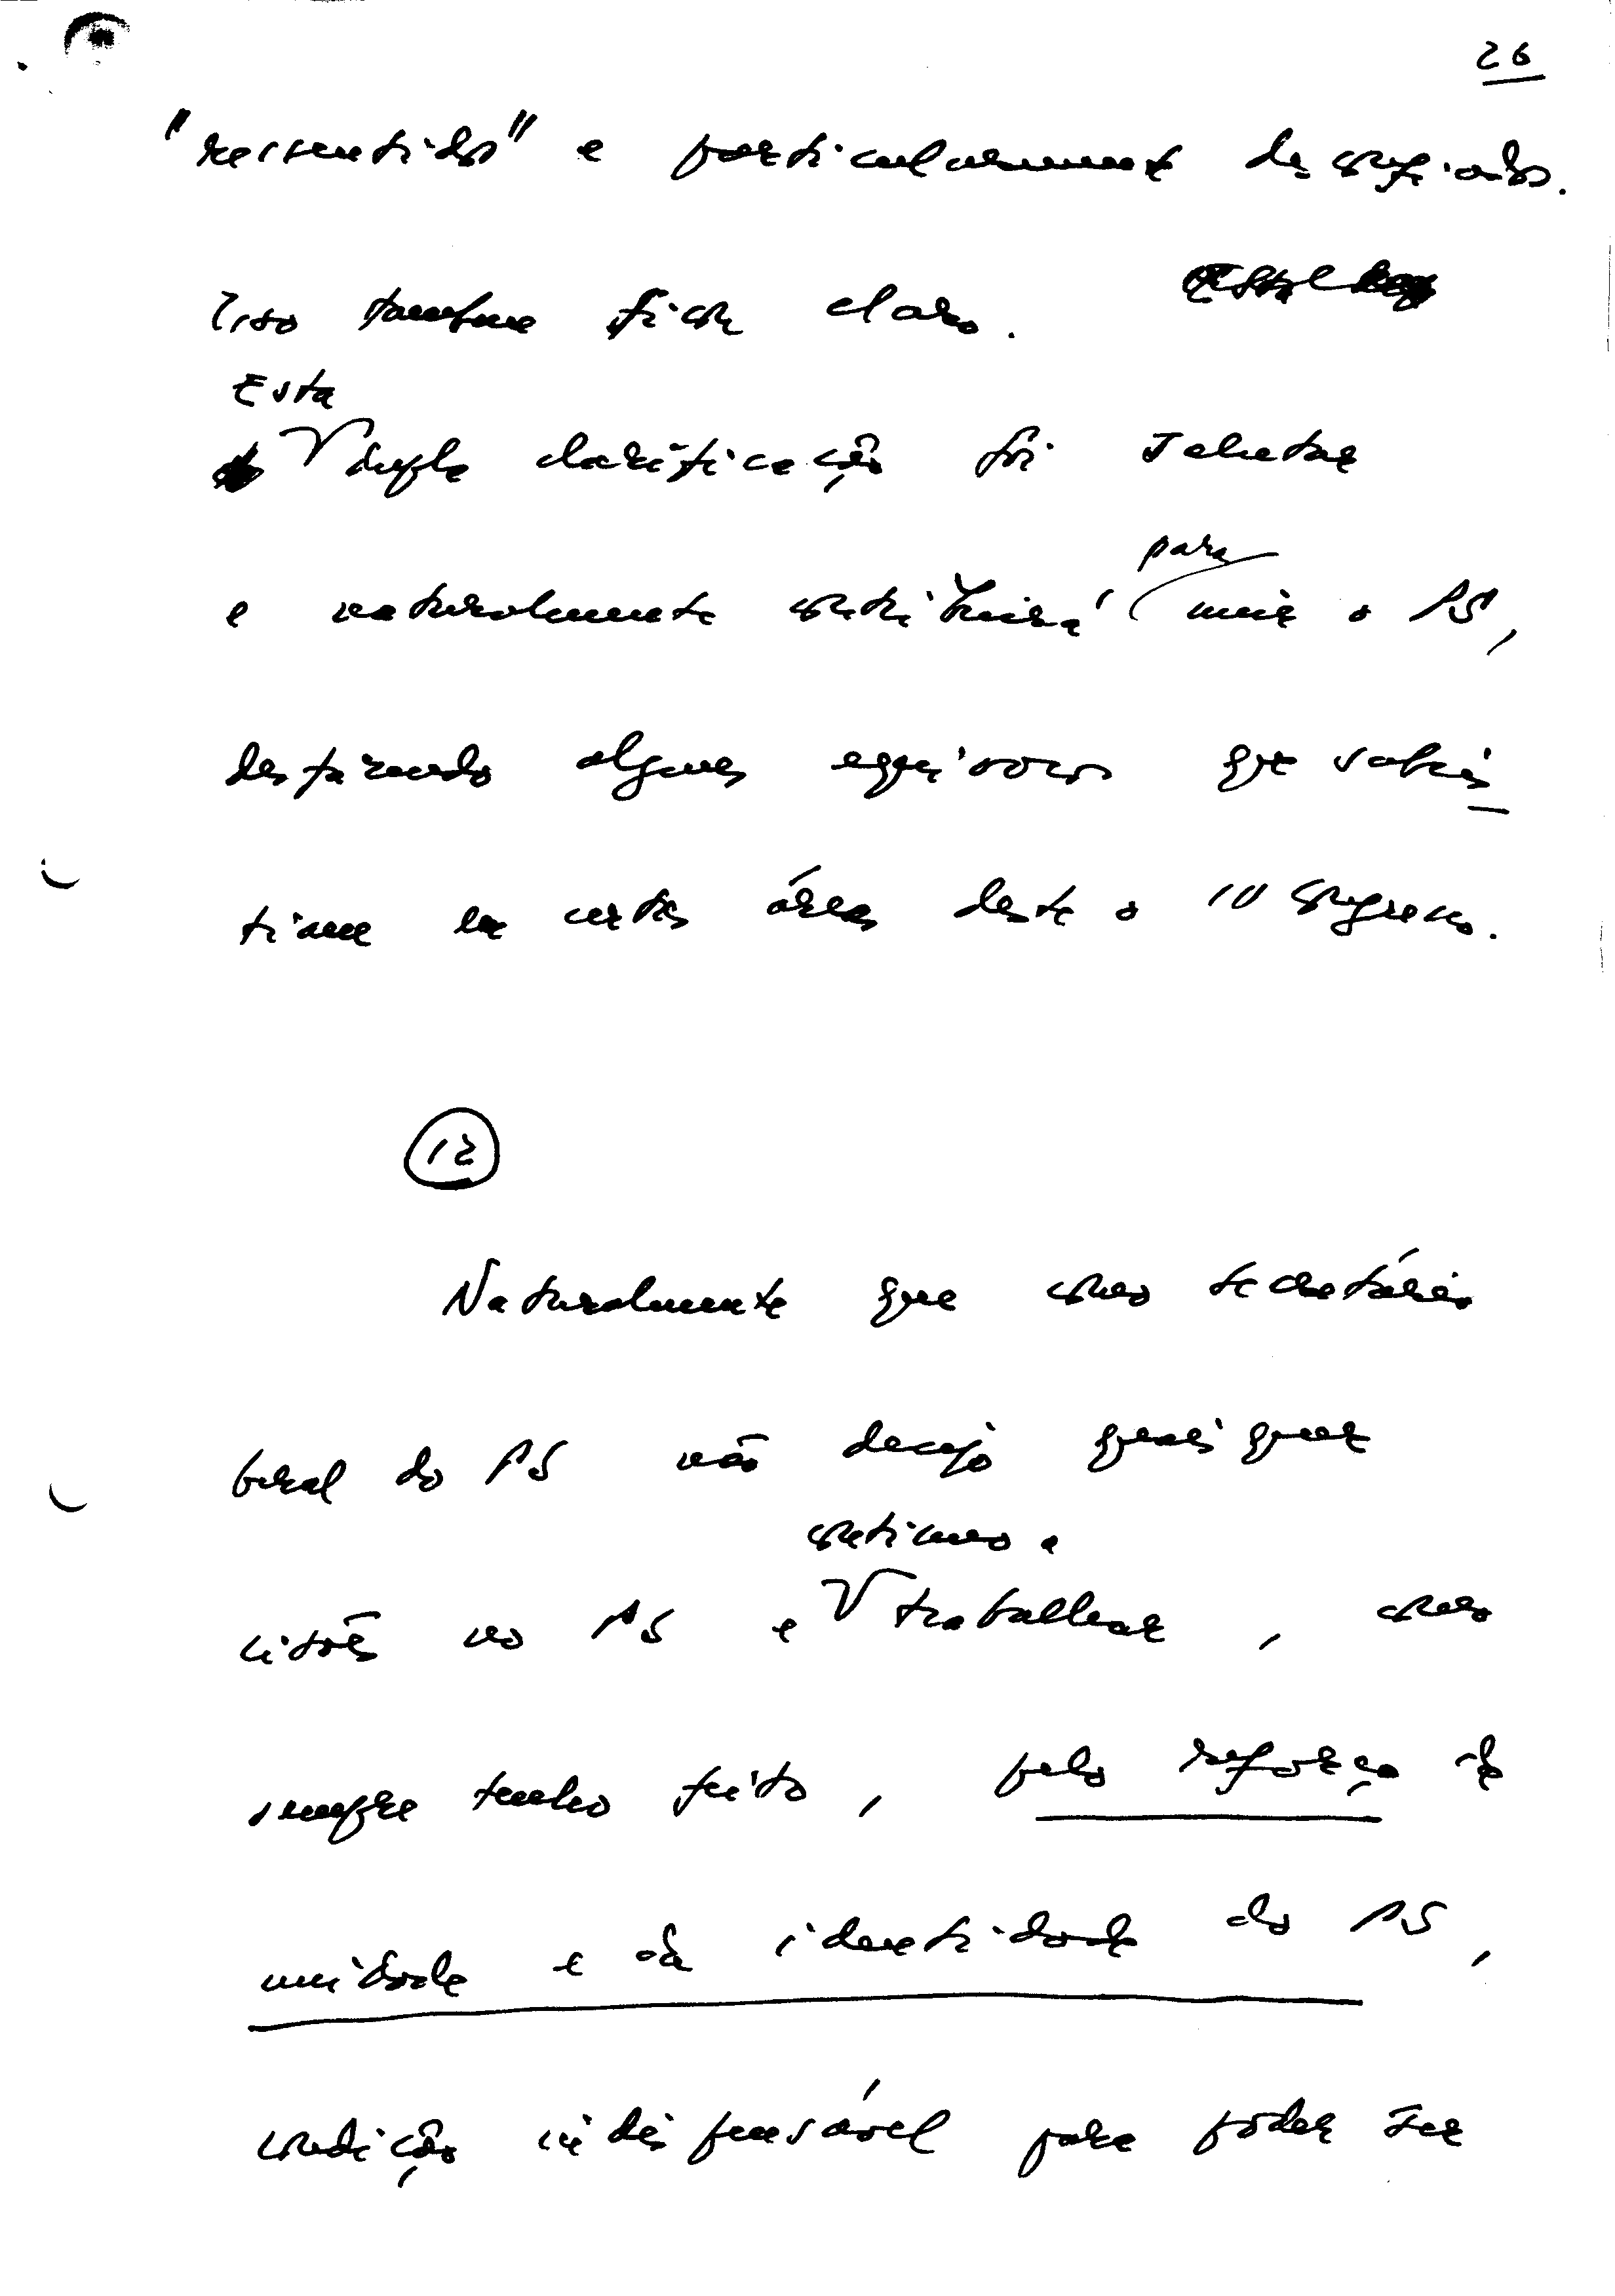 26
"ressentidos" e particularmente desconfiados.
Isso também ficou claro.
Esta
dupla clarificação foi salutar
para
e naturalmente contribuirá unir o PS,
desfazendo alguns equívocos que subsis
tiam em certas áreas deste o IV Congresso.
12
Naturalmente que como secretário
Geral do PS não desejo quaisquer
continuo a
cisões no PS e trabalhar, como
sempre tenho feito, pelo reforço da
unidade e da identidade do PS,
condição indispensável para poder ser